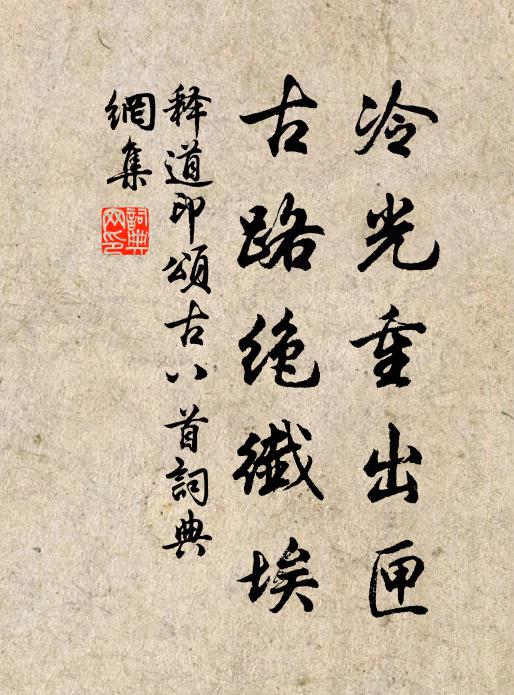 冷光重出匣
古路绝纖埃
释道印頌古八首詞典
網集
詞典
网印